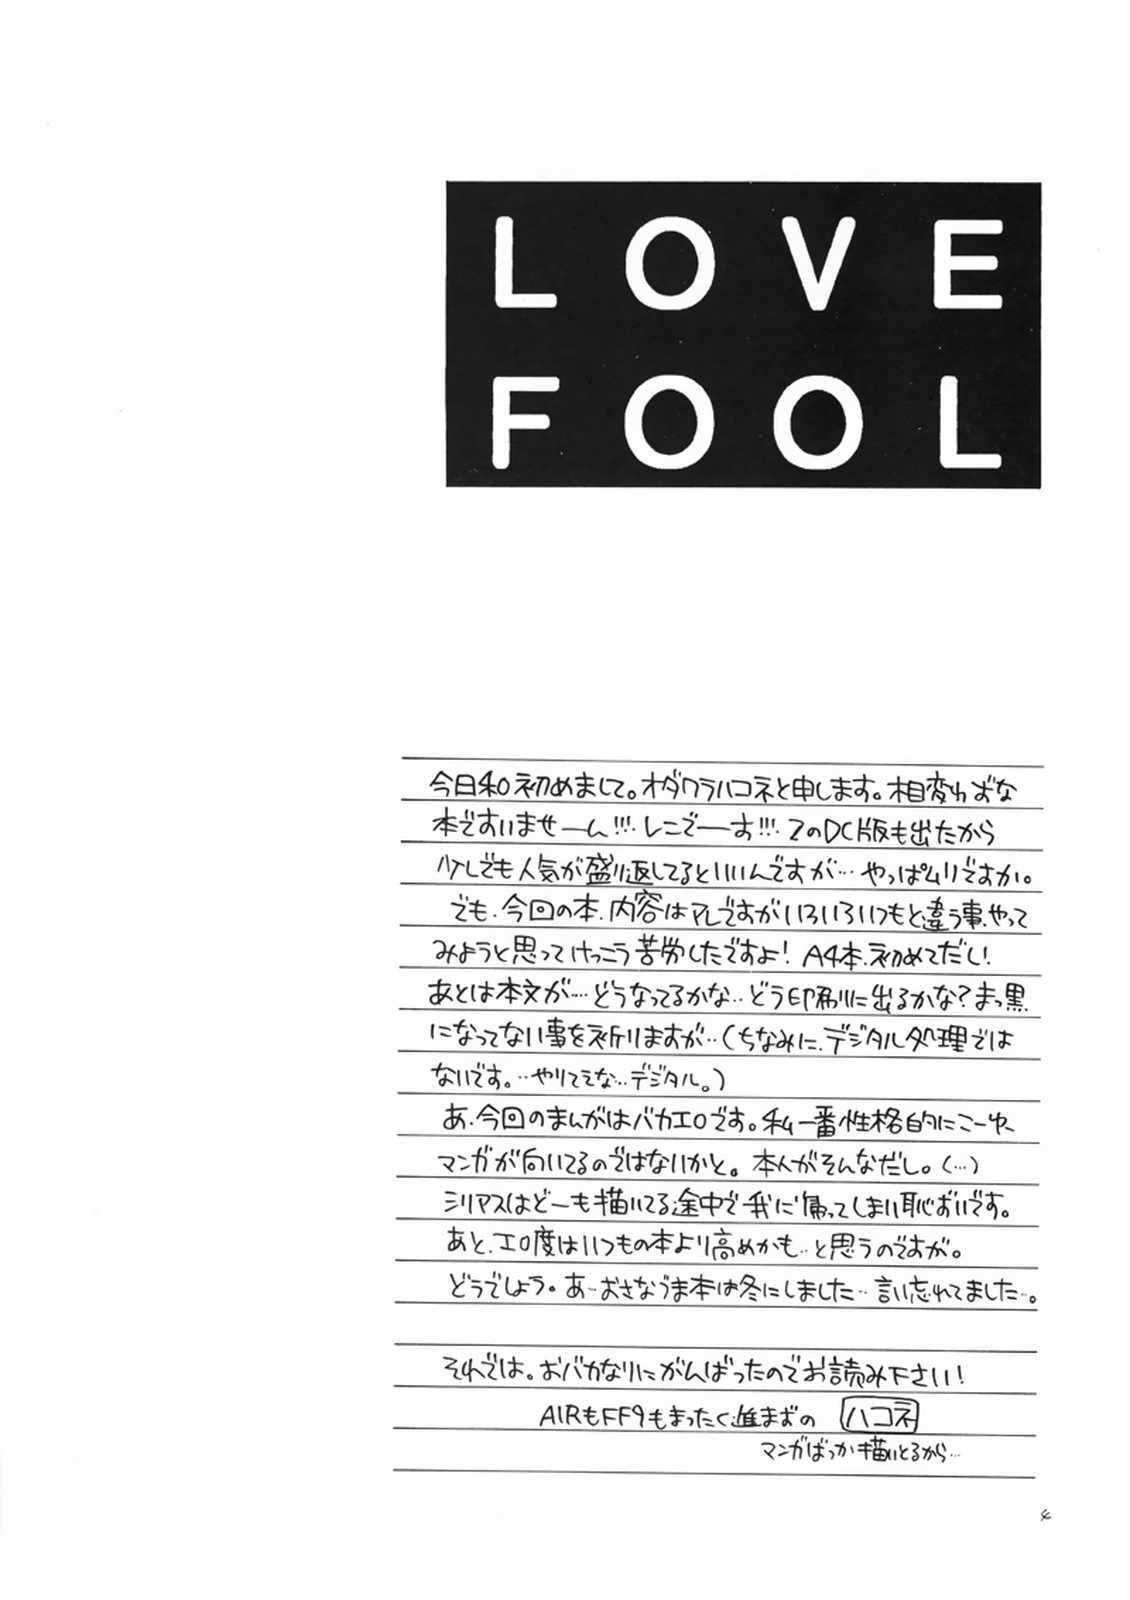 LOVE
FOOL
今日和 初めまして。オダワラハコネと申します。相変わらずな
本ですいませーん!!!・レニでーす!!!・2のDC版も出たから
少しでも人気が盛り返してるといいんですが…やっぱムリですか。
でも、今回の本、内容はアレですがいろいろいつもと違う事、やって
みようと思ってけっこう苦労したですよ! A4本、初めてだし!
あとは本文が…どうなってるかな‥どう印刷に出るかな?まっ黒
になってない事を祈りますが‥(ちなみに、デジタル処理では
ないです。‥やりてえな…デジタル。)
あ、今回のまんがはバカエロです。私一番性格的にこーゆー
マンガが向いてるのではないかと。本人がそんなだし。(…)
シリアスはどーも描いてる途中で我に帰ってしまい恥ずいです。
あと、エロ度はいつもの本より高めかも‥と思うのですが。
どうでしょう。あ‥おさなづま本は冬にしました‥言い忘れてました‥。
それでは。おバカなりにがんばったのでお読み下さい!
AIRもFF9もまったく進まずの ハコネ
マンガばっか描いとるから…
4